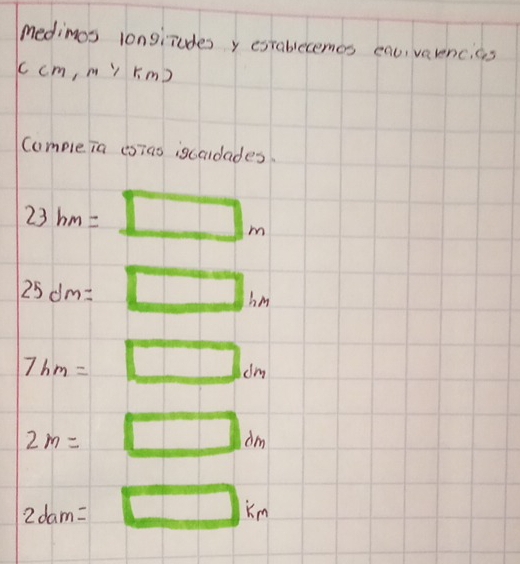 Medimos longitudes y establecemos equivalencias
(cm, m y km)
Completa estas igualdades.
23 hm = m
25 dm = hm
7 hm = dm
2 m = dm
2 dam = km